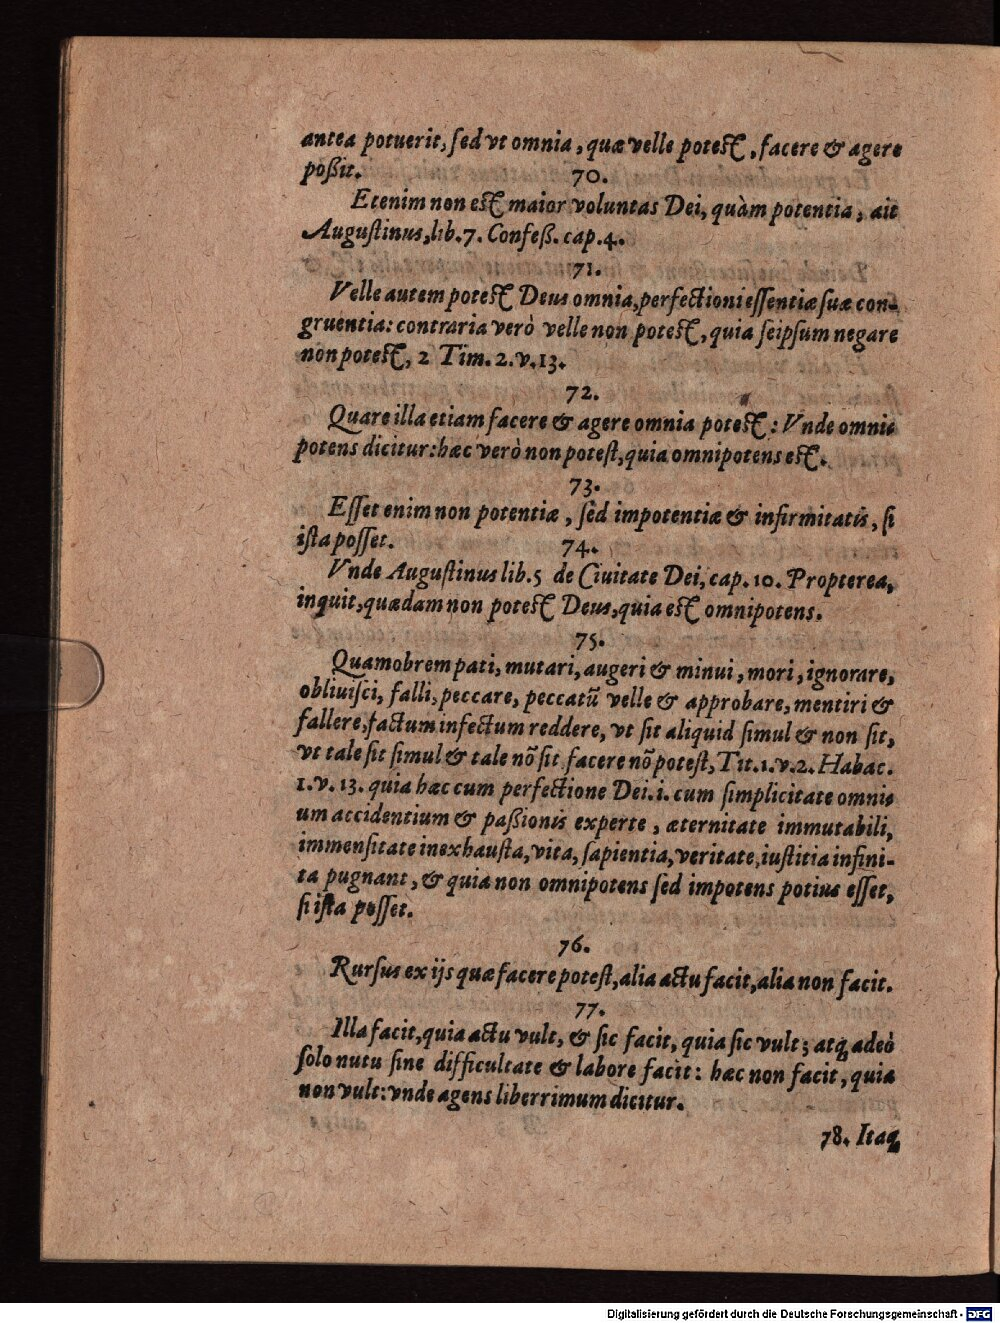 antea potuerit, ſed vt omnia, quæ velle poteſt, facere & agere
poßit.
70.
Etenim non eſt maior voluntas Dei, quàm potentia, ait
Auguſtinus, lib. 7. Confeß. cap. 4.
71.
Velle autem poteſt Deus omnia, perfectioni eſſentiæ ſuæ con-
gruentia: contraria verò velle non poteſt, quia ſeipſum negare
non poteſt, 2 Tim. 2. v. 13.
72.
Quare illa etiam facere & agere omnia poteſt: Vnde omni
potens dicitur: hæc verò non poteſt, quia omnipotens eſt.
73.
Eſſet enim non potentiæ, ſed impotentiæ & infirmitatis, ſi
iſta poſſet.
74.
Vnde Auguſtinus lib. 5 de Ciuitate Dei, cap. 10. Propterea,
inquit, quædam non poteſt Deus, quia eſt omnipotens.
75.
Quamobrem pati, mutari, augeri & minui, mori, ignorare,
obliuiſci, falli, peccare, peccatũ velle & approbare, mentiri &
fallere, factum infectum reddere, vt ſit aliquid ſimul & non ſit,
vt tale ſit ſimul & tale nõ ſit facere nõ poteſt, Tit. 1. v. 2. Habac.
1. v. 13. quia hæc cum perfectione Dei. i. cum ſimplicitate omni
um accidentium & paßionis experte, æternitate immutabili,
immenſitate inexhauſta, vita, ſapientia, veritate, iuſtitia infini-
ta pugnant, & quia non omnipotens ſed impotens potius eſſet,
ſi iſta poſſet.
76.
Rurſus ex ijs quæ facere poteſt, alia actu facit, alia non facit.
77.
Illa facit, quia actu vult, & ſic facit, quia ſic vult; atq́ adeò
ſolo nutu ſine difficultate & labore facit: hæc non facit, quia
non vult: vnde agens liberrimum dicitur.
78. Itaq́
Digitalisierung gefördert durch die Deutsche Forschungsgemeinschaft - DFG